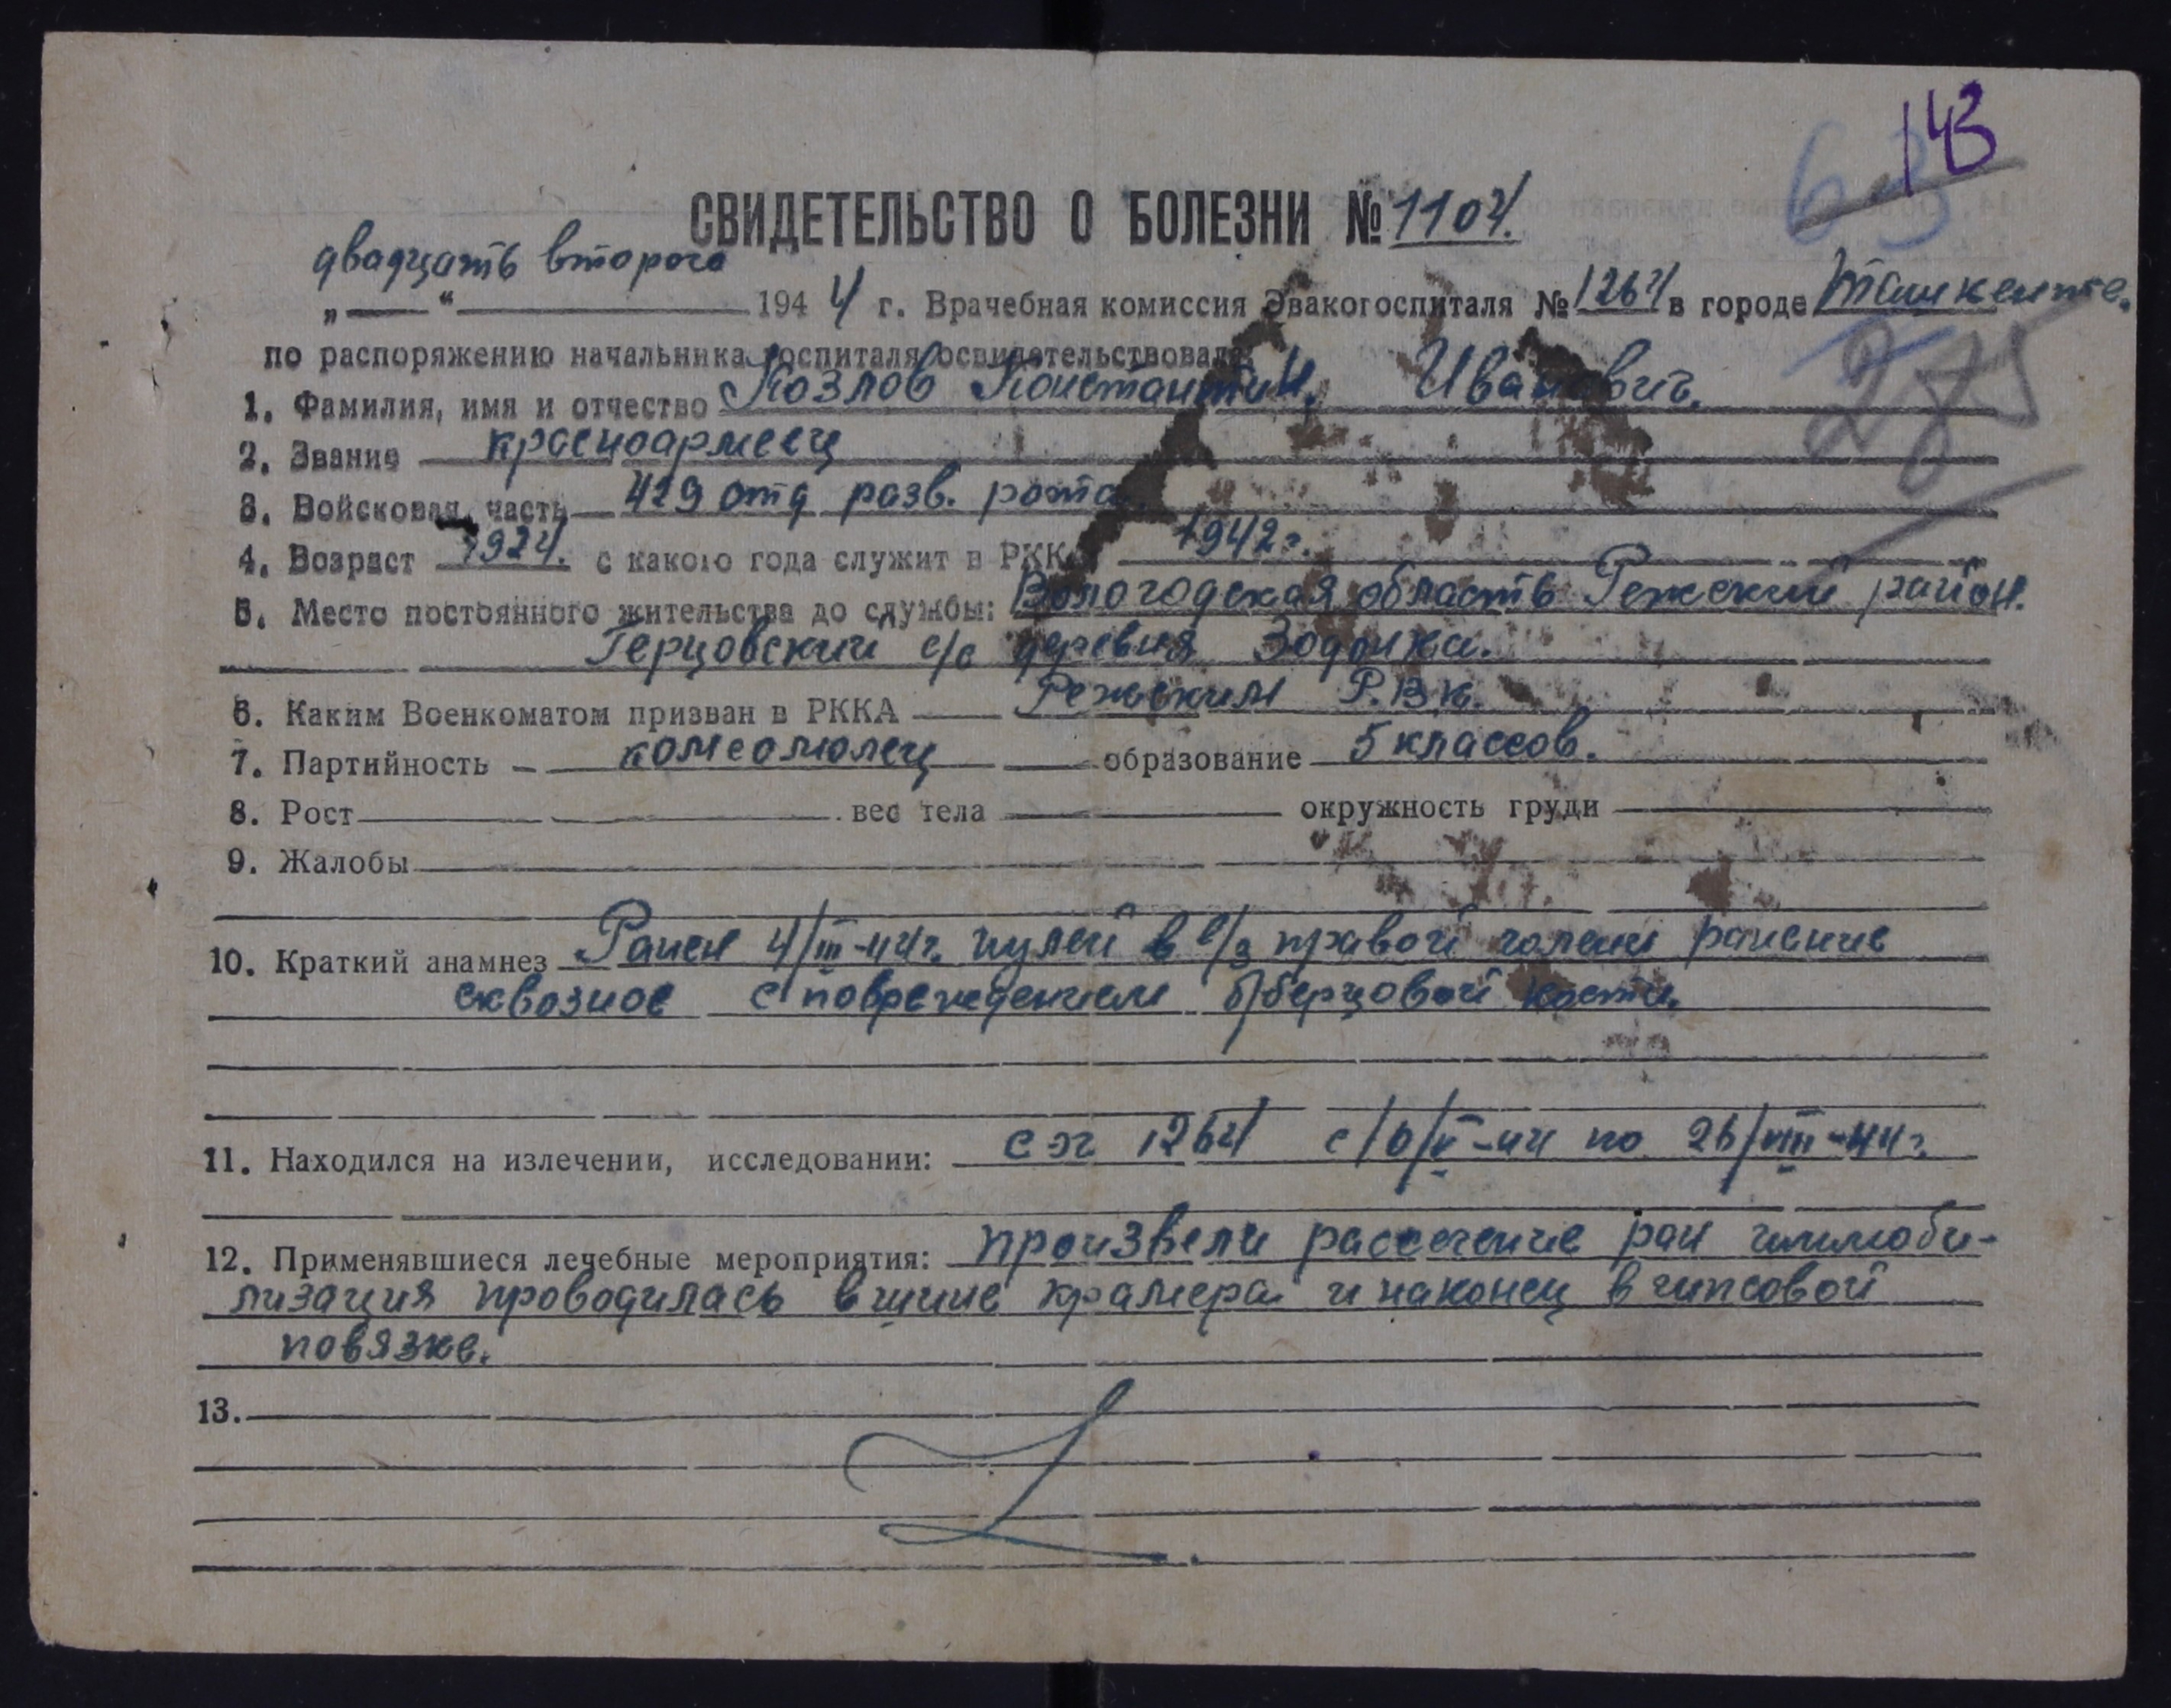 143
63
СВИДЕТЕЛЬСТВО О БОЛЕЗНИ № 1104.
двадцать второго
„ — “ 1944 г. Врачебная комиссия Эвакогоспиталя № 1264 в городе Ташкенте.
по распоряжению начальника госпиталя освидетельствовала:
275
1. Фамилия, имя и отчество Козлов Константин, Иванович.
2. Звание красноармеец
3. Войсковая часть 429 отд разв. рота
4. Возраст 1924. с какого года служит в РККА 1942г.
5. Место постоянного жительства до службы: Вологодская область Режский район.
Герцовский с/с деревня
6. Каким Военкоматом призван в РККА Режским Р.В.К.
7. Партийность комсомолец образование 5 классов.
8. Рост вес тела окружность груди
9. Жалобы
10. Краткий анамнез Ранен 4/III-44г. пулей в с/з правой голени ранение
сквозное с повреждением б/берцовой кости.
11. Находился на излечении, исследовании: с эг 1264 с 10/V-44 по 26/VIII-44г.
12. Применявшиеся лечебные мероприятия: произвели рассечение ран иммоби-
лизация проводилась в шине крамера и наконец в гипсовой
повязке.
13.